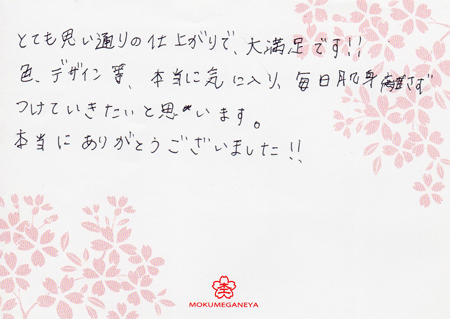 とても思い通りの仕上がりで、大満足です!!
色、デザイン等、本当に気に入り、毎日肌身離さず
つけていきたいと思います。
本当にありがとうございました!!
MOKUMEGANEYA